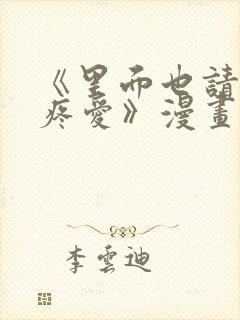 《里面也請
疼愛》漫畫
李雲迪